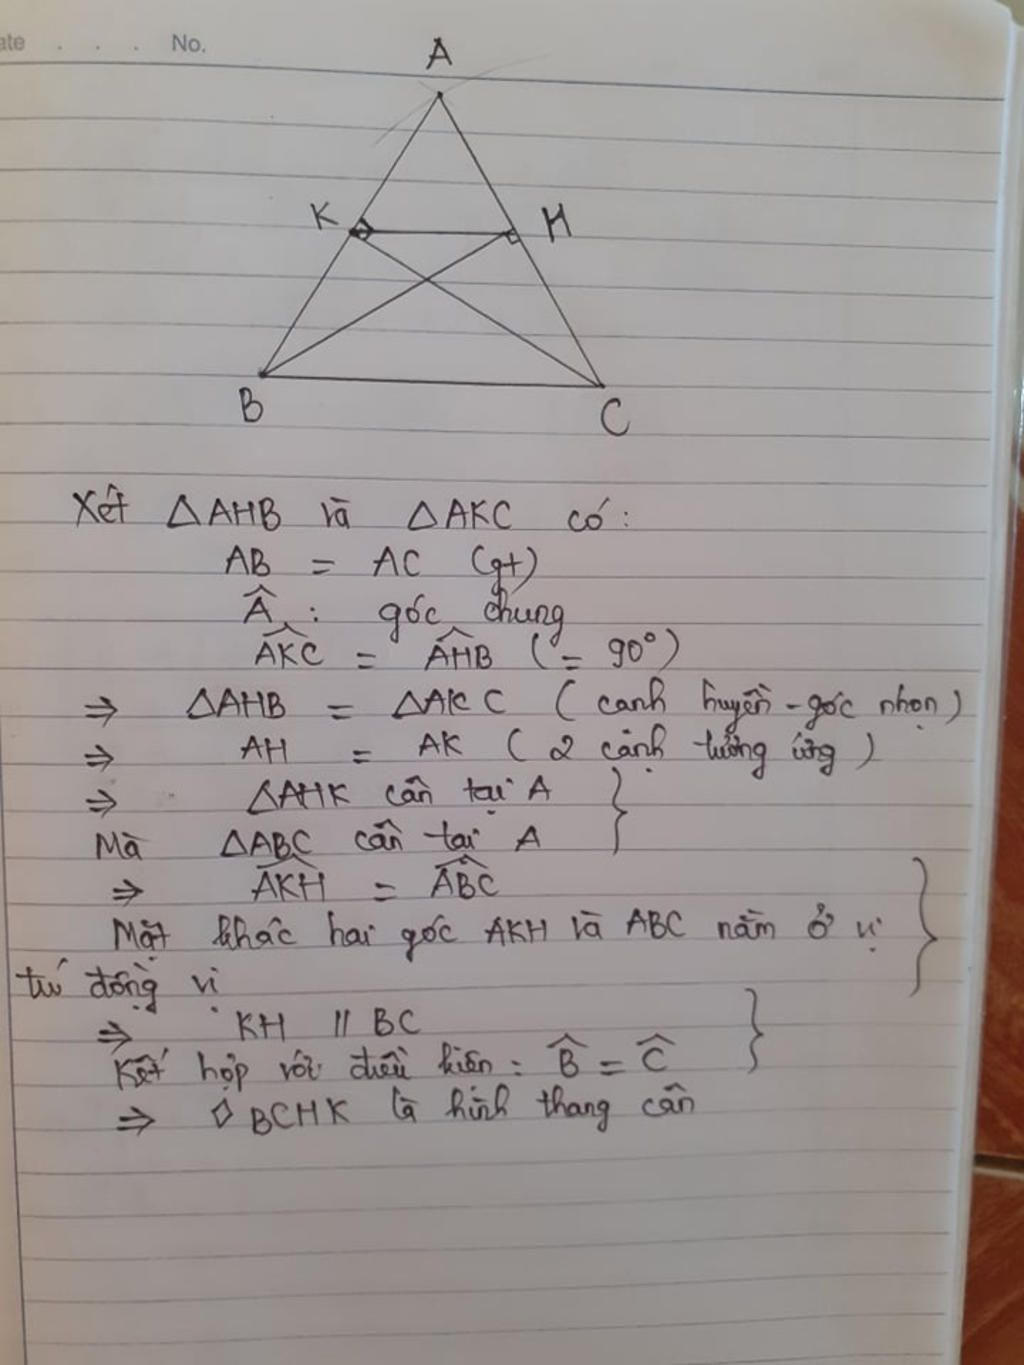 ate . . . No.
A
K H
B C
Xét △AHB và △AKC có:
AB = AC (gt)
Â : góc chung
\widehat{AKC} = \widehat{AHB} (= 90°)
⇒ △AHB = △AKC (cạnh huyền - góc nhọn)
⇒ AH = AK (2 cạnh tương ứng)
⇒ △AHK cân tại A
Mà △ABC cân tại A
⇒ \widehat{AKH} = \widehat{ABC}
Mặt khác hai góc AKH và ABC nằm ở vị
trí đồng vị
⇒ KH // BC
Kết hợp với điều kiện : \widehat{B} = \widehat{C}
⇒ ◊BCHK là hình thang cân